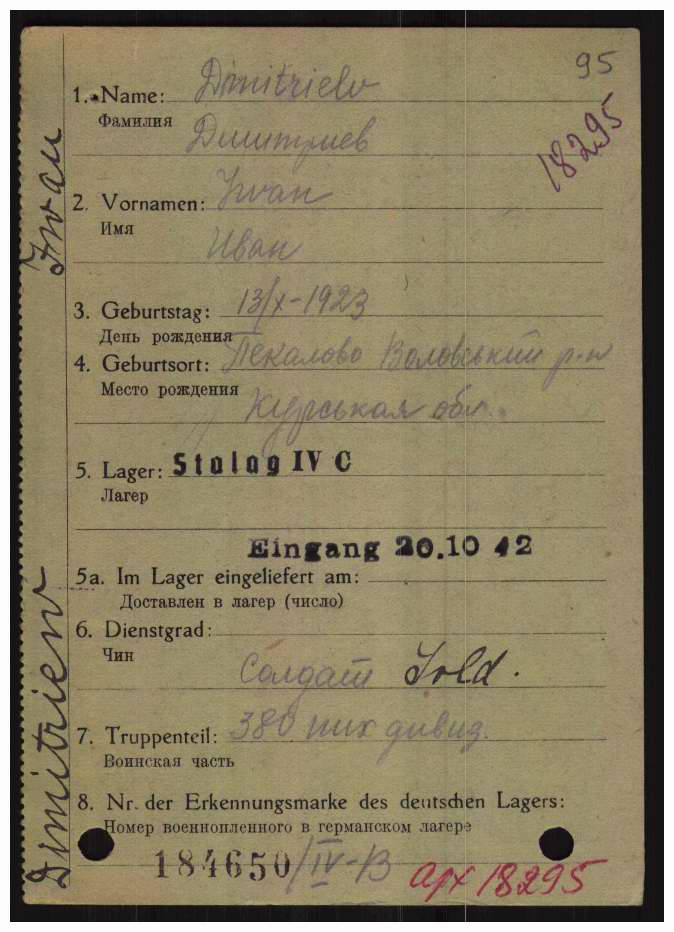 95
18295
1. Name: Dmitriew
Фамилия Дмитриев
2. Vornamen: Iwan
Имя
Иван
3. Geburtstag: 13/X-1923
День рождения
4. Geburtsort: Пекалово Воловський р-н
Место рождения
Курськая обл.
5. Lager: Stalag IV C
Лагер
Eingang 20.10 42
5a. Im Lager eingeliefert am:
Доставлен в лагер (число)
6. Dienstgrad:
Чин
Солдат Sold.
7. Truppenteil: 380 пих дивиз.
Воинская часть
8. Nr. der Erkennungsmarke des deutschen Lagers:
Номер военнопленного в германском лагере
184650/IV-B
арх 18295
Dmitriew Iwan